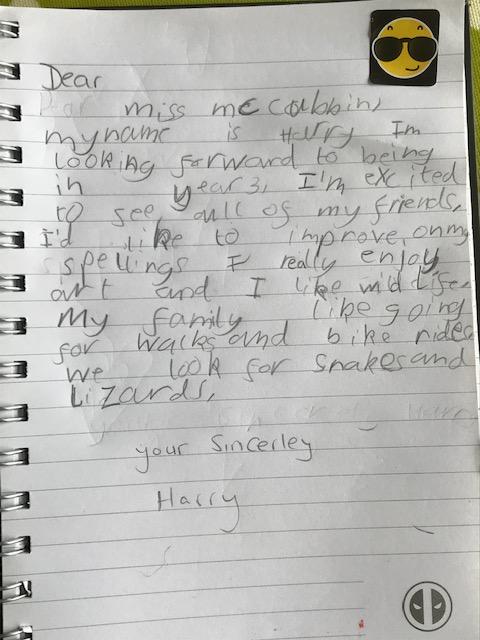 Dear
miss mccubbin,
my name is Harry Im
looking forward to being
in year 3, I'm excited
to see aull of my friends,
I'd like to improve, on my
spellings I really enjoy
art and I like wild life,
My family like going
for walks and bike rides
we look for snakes and
Lizards,
your Sincerley
Harry